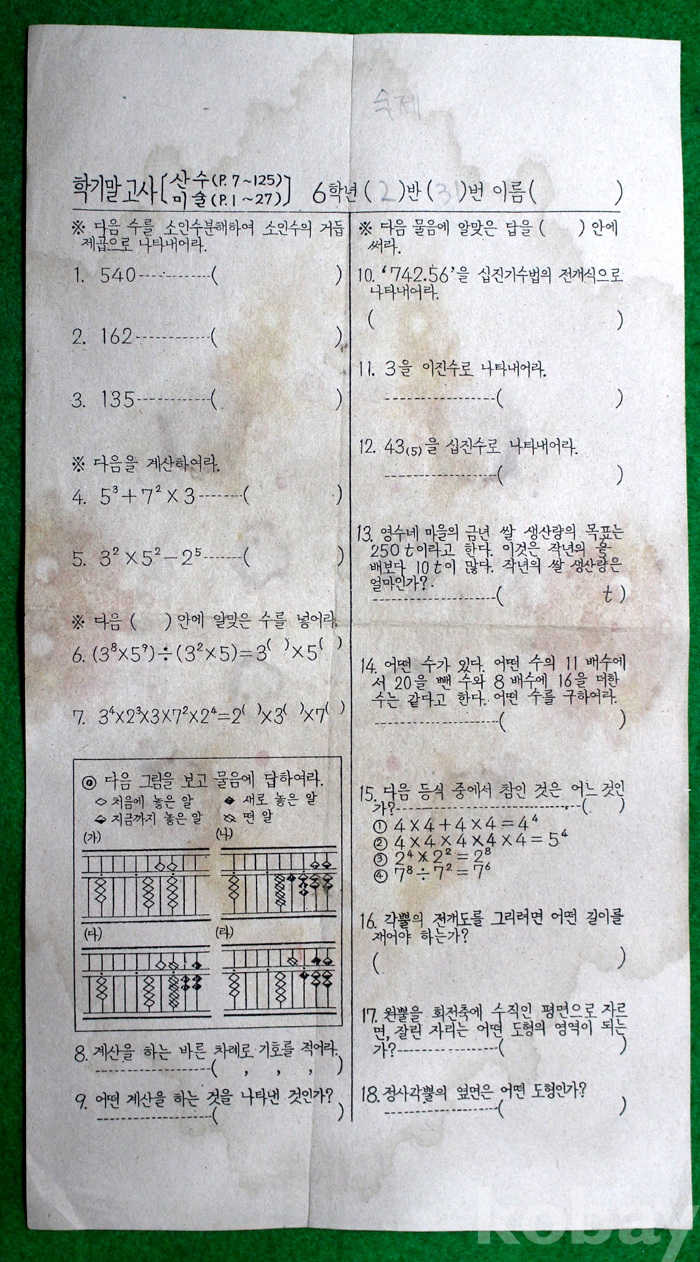 숙제
학기말 고사 [ 산 수 (P. 7~125) 미 술 (P. 1~27) ] 6학년 ( 2 )반 ( 31 )번 이름( )
※ 다음 수를 소인수분해하여 소인수의 거듭
제곱으로 나타내어라.
1. 540----------( )
2. 162----------( )
3. 135----------( )
※ 다음을 계산하여라.
4. 5³ + 7² × 3------( )
5. 3² × 5² − 2⁵------( )
※ 다음 ( )안에 알맞은 수를 넣어라.
6. (3⁸×5⁹)÷(3²×5)=3⁽ ⁾×5⁽ ⁾
7. 3⁴×2³×3×7²×2⁴=2⁽ ⁾×3⁽ ⁾×7⁽ ⁾
◎ 다음 그림을 보고 물음에 답하여라.
처음에 놓은 알 새로 놓은 알
지금까지 놓은 알 떤 알
(가) (나)
(다) (라)
8. 계산을 하는 바른 차례로 기호를 적어라.
---------------( , , , )
9. 어떤 계산을 하는 것을 나타낸 것인가?
---------------( )
※ 다음 물음에 알맞은 답을 ( )안에
써라.
10. ‘742.56’을 십진기수법의 전개식으로
나타내어라.
( )
11. 3을 이진수로 나타내어라.
---------------( )
12. 43₍₅₎을 십진수로 나타내어라.
---------------( )
13. 영수네 마을의 금년 쌀 생산량의 목표는
250t이라고 한다. 이것은 작년의
배보다 10t이 많다. 작년의 쌀 생산량은
얼마인가?
---------------( t )
14. 어떤 수가 있다. 어떤 수의 11 배수에
서 20을 뺀 수와 8 배수에 16을 더한
수는 같다고 한다. 어떤 수를 구하여라.
---------------( )
15. 다음 등식 중에서 참인 것은 어느 것인
가?---------------( )
① 4 × 4 + 4 × 4 = 4⁴
② 4 × 4 × 4 × 4 × 4 = 5⁴
③ 2⁴ × 2² = 2⁸
④ 7⁸ ÷ 7² = 7⁶
16. 각뿔의 전개도를 그리려면 어떤 길이를
재어야 하는가?
( )
17. 원뿔을 회전축에 수직인 평면으로 자르
면, 잘린 자리는 어떤 도형의 영역이 되는
가?---------------( )
18. 정사각뿔의 옆면은 어떤 도형인가?
---------------( )
kobay